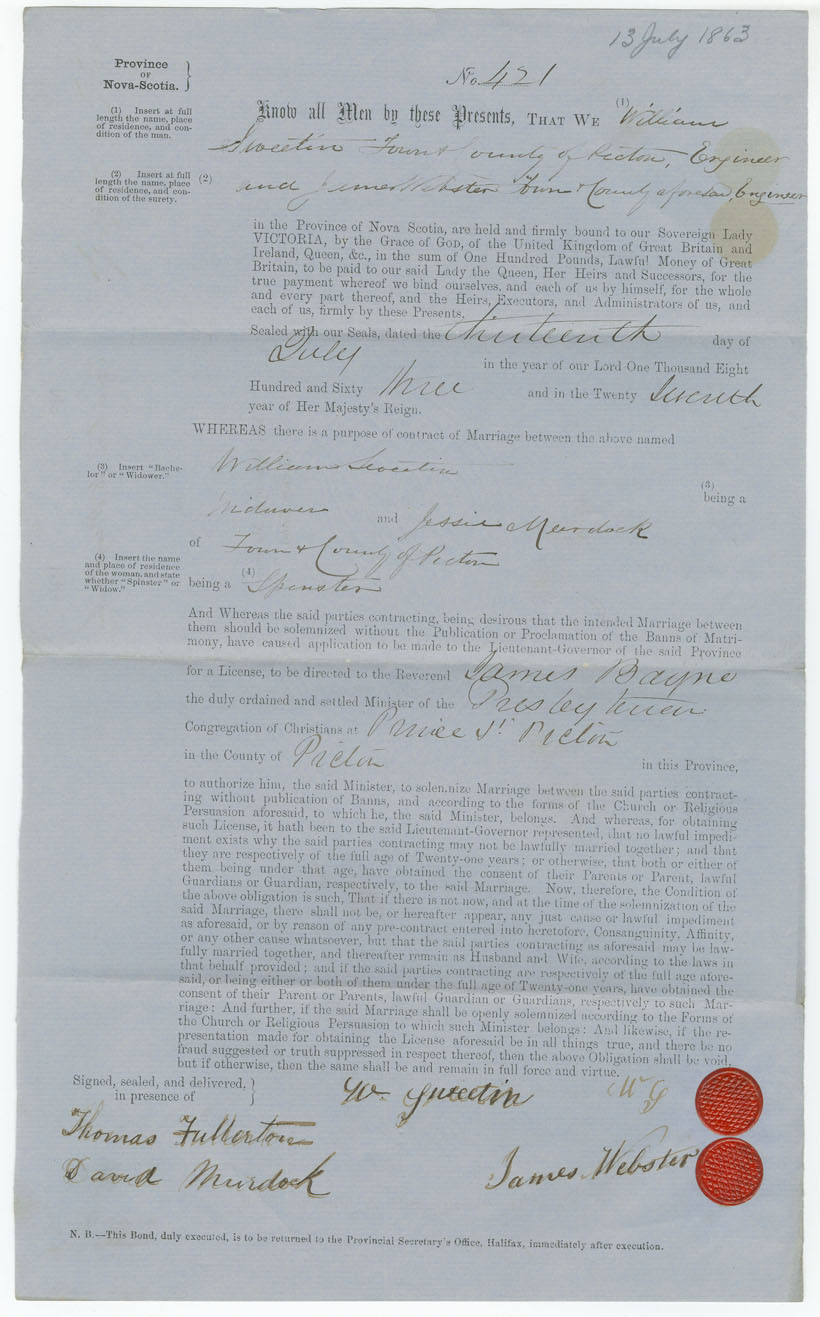 13 July 1863
Province
OF
Nova-Scotia. }
No. 421
(1) Insert at full
length the name, place
of residence, and con-
dition of the man.
Know all Men by these Presents, THAT WE (1) William
Sweetin Town & County of Picton, Engineer
(2) Insert at full
length the name, place
of residence, and con-
dition of the surety.
(2) and James Webster Town & County aforesaid, Engineer
in the Province of Nova Scotia, are held and firmly bound to our Sovereign Lady
VICTORIA, by the Grace of GOD, of the United Kingdom of Great Britain and
Ireland, Queen, &c., in the sum of One Hundred Pounds, Lawful Money of Great
Britain, to be paid to our said Lady the Queen, Her Heirs and Successors, for the
true payment whereof we bind ourselves, and each of us by himself, for the whole
and every part thereof, and the Heirs, Executors, and Administrators of us, and
each of us, firmly by these Presents.
Sealed with our Seals, dated the thirteenth day of
July in the year of our Lord One Thousand Eight
Hundred and Sixty three and in the Twenty Seventh
year of Her Majesty's Reign.
WHEREAS there is a purpose of contract of Marriage between the above named
(3) Insert "Bache-
lor" or "Widower."
William Sweetin (3) being a
Widower and Jessie Murdock
of Town & County of Picton
(4) Insert the name
and place of residence
of the woman, and state
whether "Spinster" or
"Widow."
being a (4) Spinster
And Whereas the said parties contracting, being desirous that the intended Marriage between
them should be solemnized without the Publication or Proclamation of the Banns of Matri-
mony, have caused application to be made to the Lieutenant-Governor of the said Province
for a License, to be directed to the Reverend James Bayne
the duly ordained and settled Minister of the Presbyterian
Congregation of Christians at Prince St Picton
in the County of Picton in this Province,
to authorize him, the said Minister, to solemnize Marriage between the said parties contract-
ing without publication of Banns, and according to the forms of the Church or Religious
Persuasion aforesaid, to which he, the said Minister, belongs. And whereas, for obtaining
such License, it hath been to the said Lieutenant-Governor represented, that no lawful impedi-
ment exists why the said parties contracting may not be lawfully married together; and that
they are respectively of the full age of Twenty-one years; or otherwise, that both or either of
them being under that age, have obtained the consent of their Parents or Parent, lawful
Guardians or Guardian, respectively, to the said Marriage. Now, therefore, the Condition of
the above obligation is such, That if there is not now, and at the time of the solemnization of the
said Marriage, there shall not be, or hereafter appear, any just cause or lawful impediment
as aforesaid, or by reason of any pre-contract entered into heretofore, Consanguinity, Affinity,
or any other cause whatsoever, but that the said parties contracting as aforesaid may be law-
fully married together, and thereafter remain as Husband and Wife, according to the laws in
that behalf provided; and if the said parties contracting are respectively of the full age afore-
said, or being either or both of them under the full age of Twenty-one years, have obtained the
consent of their Parent or Parents, lawful Guardian or Guardians, respectively to such Mar-
riage: And further, if the said Marriage shall be openly solemnized according to the Forms of
the Church or Religious Persuasion to which such Minister belongs: And likewise, if the re-
presentation made for obtaining the License aforesaid be in all things true, and there be no
fraud suggested or truth suppressed in respect thereof, then the above Obligation shall be void,
but if otherwise, then the same shall be and remain in full force and virtue.
Signed, sealed, and delivered, }
in presence of
W. Sweetin
Thomas Fullerton
David Murdock
James Webster
N. B.—This Bond, duly executed, is to be returned to the Provincial Secretary's Office, Halifax, immediately after execution.